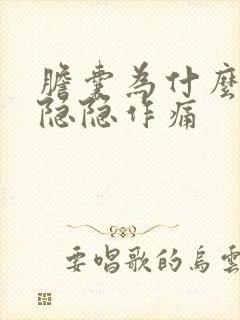 膽囊為什麼
隐隐作痛
要唱歌的烏雲